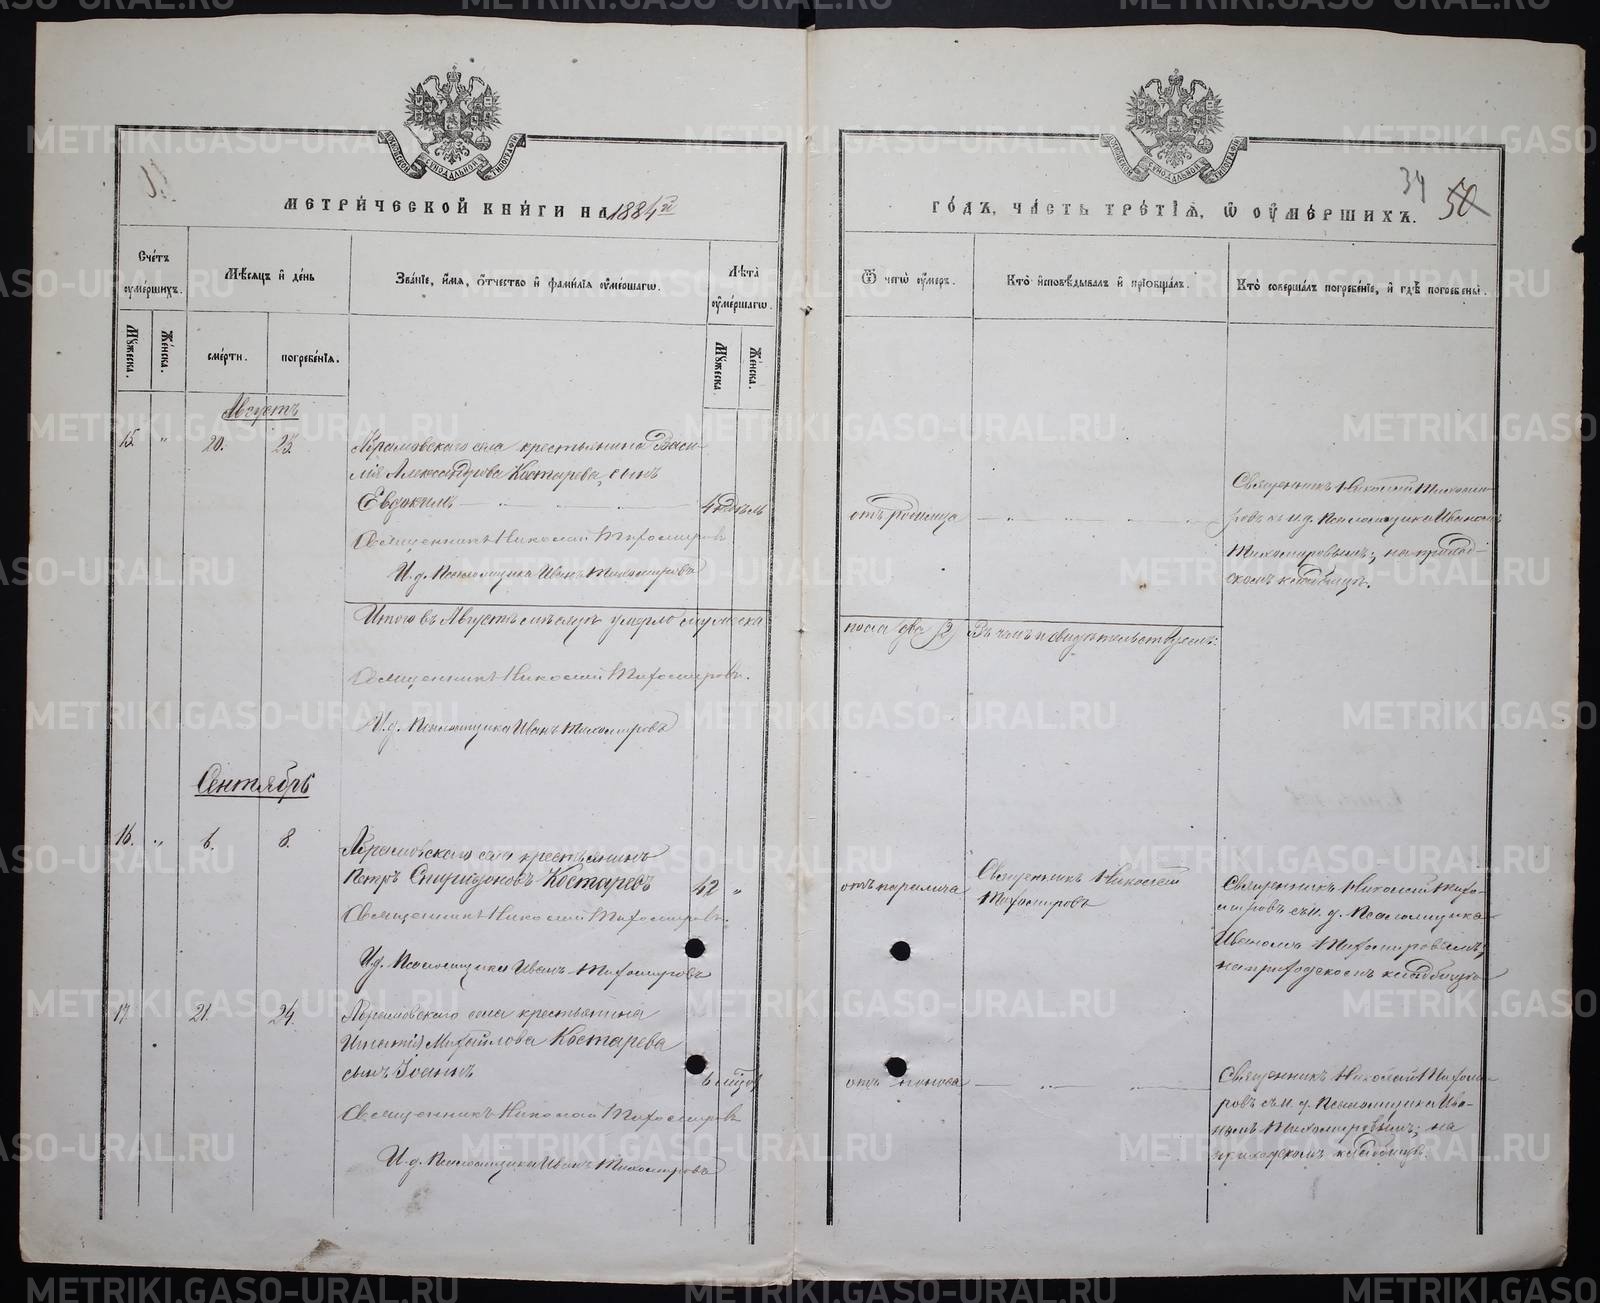 МОСКОВСКОЙ СѴНОДАЛЬНОЙ ТИПОГРАФІИ
МЕТРИЧЕСКОЙ КНИГИ НА 1884й
Счетъ умершихъ.
Мѣсяцъ и день
Званіе, имя, отчество и фамилія умершагѡ.
Лѣта умершагѡ.
Мужеска.
Женска.
смерти.
погребенія.
Мужеска
Женска.
Августъ
15. " 20. 23.
села крестьянина Васи-
лія Александрова Костарева, сынъ
Евдокимъ 4 недѣль
Священникъ Николай Тихомировъ
И. д. Псаломщика Иванъ Тихомировъ
Итого въ Августѣ мѣсяцѣ умерло мужеска
Священникъ Николай Тихомировъ.
И. д. Псаломщика Иванъ Тихомировъ
Сентябрь
16. " 6. 8.
села крестьянинъ
Петръ Спиридоновъ Костаревъ 42 "
Священникъ Николай Тихомировъ.
И. д. Псаломщика Иванъ Тихомировъ
17. 21. 24.
села крестьянина
Игнатія Михайлова Костарева
сынъ Іоаннъ 6
Священникъ Николай Тихомировъ
И. д. Псаломщика Иванъ Тихомировъ
МОСКОВСКОЙ СѴНОДАЛЬНОЙ ТИПОГРАФІИ
34 50
ГОДЪ, ЧАСТЬ ТРЕТІЯ, Ѡ ОУМЕРШИХЪ.
Ѿ чегѡ умеръ.
Кто исповѣдывалъ и пріобщалъ.
Кто совершалъ погребеніе, и гдѣ погребены.
отъ родимца
Священникъ Николай Тихоми-
ровъ съ и. д. Псаломщика Иваномъ
Тихомировымъ; на приход-
скомъ кладбищѣ.
пола два (2) Въ чемъ и свидѣтельствуемъ:
отъ паралича
Священникъ Николай
Тихомировъ
Священникъ Николай Тихо-
мировъ съ и. д. Псаломщика
Иваномъ Тихомировымъ;
на приходскомъ кладбищѣ
отъ поноса
Священникъ Николай Тихоми-
ровъ съ и. д. Псаломщика Ива-
номъ Тихомировымъ; на
приходскомъ кладбищѣ.
METRIKI.GASO-URAL.RU